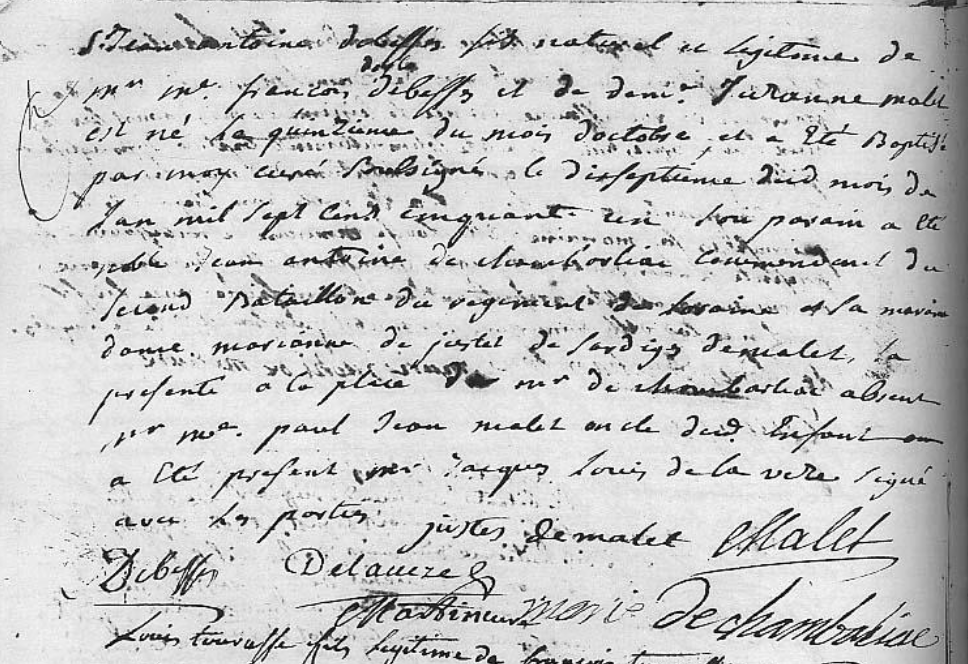 Sr Jean antoine debesses fils naturel et legitime de
mr me. francois debesses et de demle. Suzanne malet
est né le quinzieme du mois doctobre et a Eté Baptisé
par moy curé Soussigné le dixseptieme dud mois de
lan mil sept cens cinquante un Son parain a Eté
noble Jean antoine de chambarliac Commendant du
second Bataillon du regiment de loraine et sa maraine
dame marianne de justet de Sardiges demalet, sa
presente a la place de mr de chambarliac absent
mr me. paul Jean malet oncle dud. Enfant
a Eté present mr Jacques louis de la veze signé
avec les parties justes demalet Malet
Debesses Delaveze
marie de chambarliac
Louis fils legitime de francois